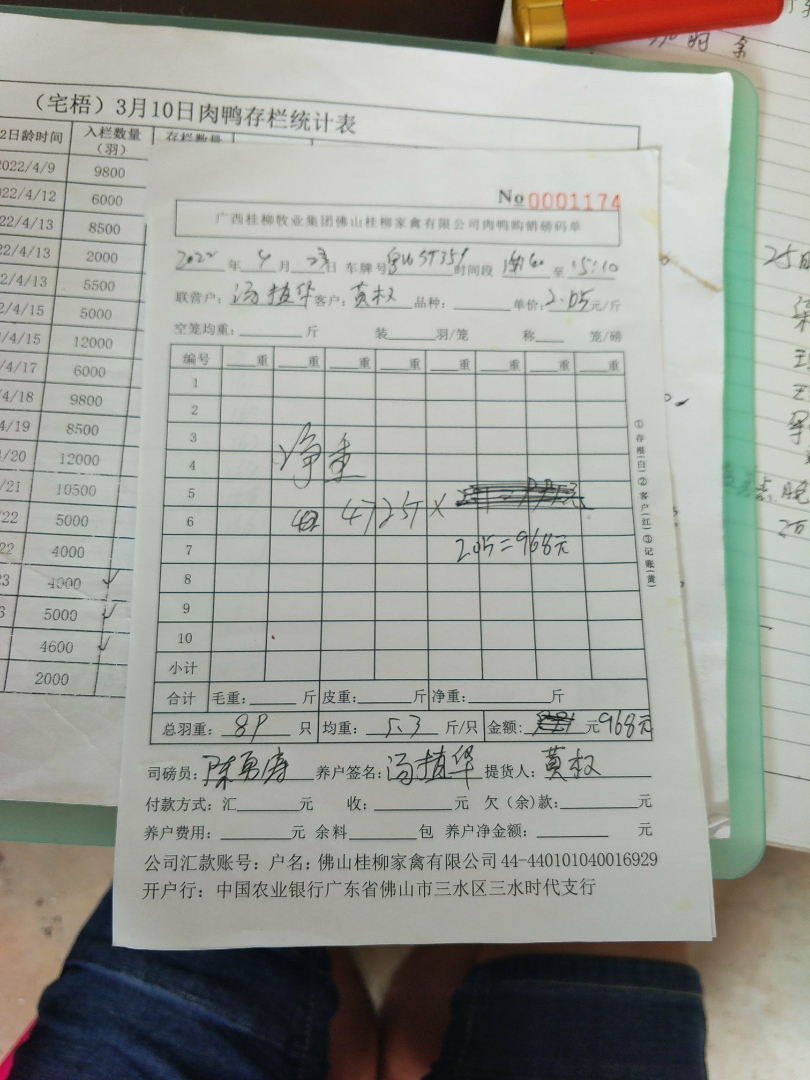 （宅梧）3月10日肉鸭存栏统计表
2日龄时间 入栏数量（羽） 存栏数量
2022/4/9 9800
022/4/12 6000
22/4/13 8500
2/4/13 2000
2/4/13 5500
2/4/15 5000
/4/15 12000
/4/17 6000
4/18 9800
4/19 8500
4/20 12000
/21 10500
/22 5000
22 4000
23 4900 ✓
3 5000 ✓
4600 ✓
2000
No 0001174
广西桂柳牧业集团佛山桂柳家禽有限公司肉鸭购销磅码单
2022年4月23日 车牌号 时间段 至 15:10
联营户：汤植华 客户：黄权 品种： 单价：2.05元/斤
空笼均重： 斤 装 羽/笼 称 笼/磅
编号 重 重 重 重 重 重 重 重
1
2
3
4
净重
5
6 4725 ×
7 2.05=968元
8
9
10
小计
合计 毛重： 斤 皮重： 斤 净重： 斤
总羽重：89 只 均重：5.3 斤/只 金额： 元 968元
司磅员：陈勇涛 养户签名：汤植华 提货人：黄权
付款方式：汇 元 收： 元 欠（余）款： 元
养户费用： 元 余料 包 养户净金额： 元
公司汇款账号：户名：佛山桂柳家禽有限公司 44-440101040016929
开户行：中国农业银行广东省佛山市三水区三水时代支行
①存根（白）②客户（红）③记账（黄）